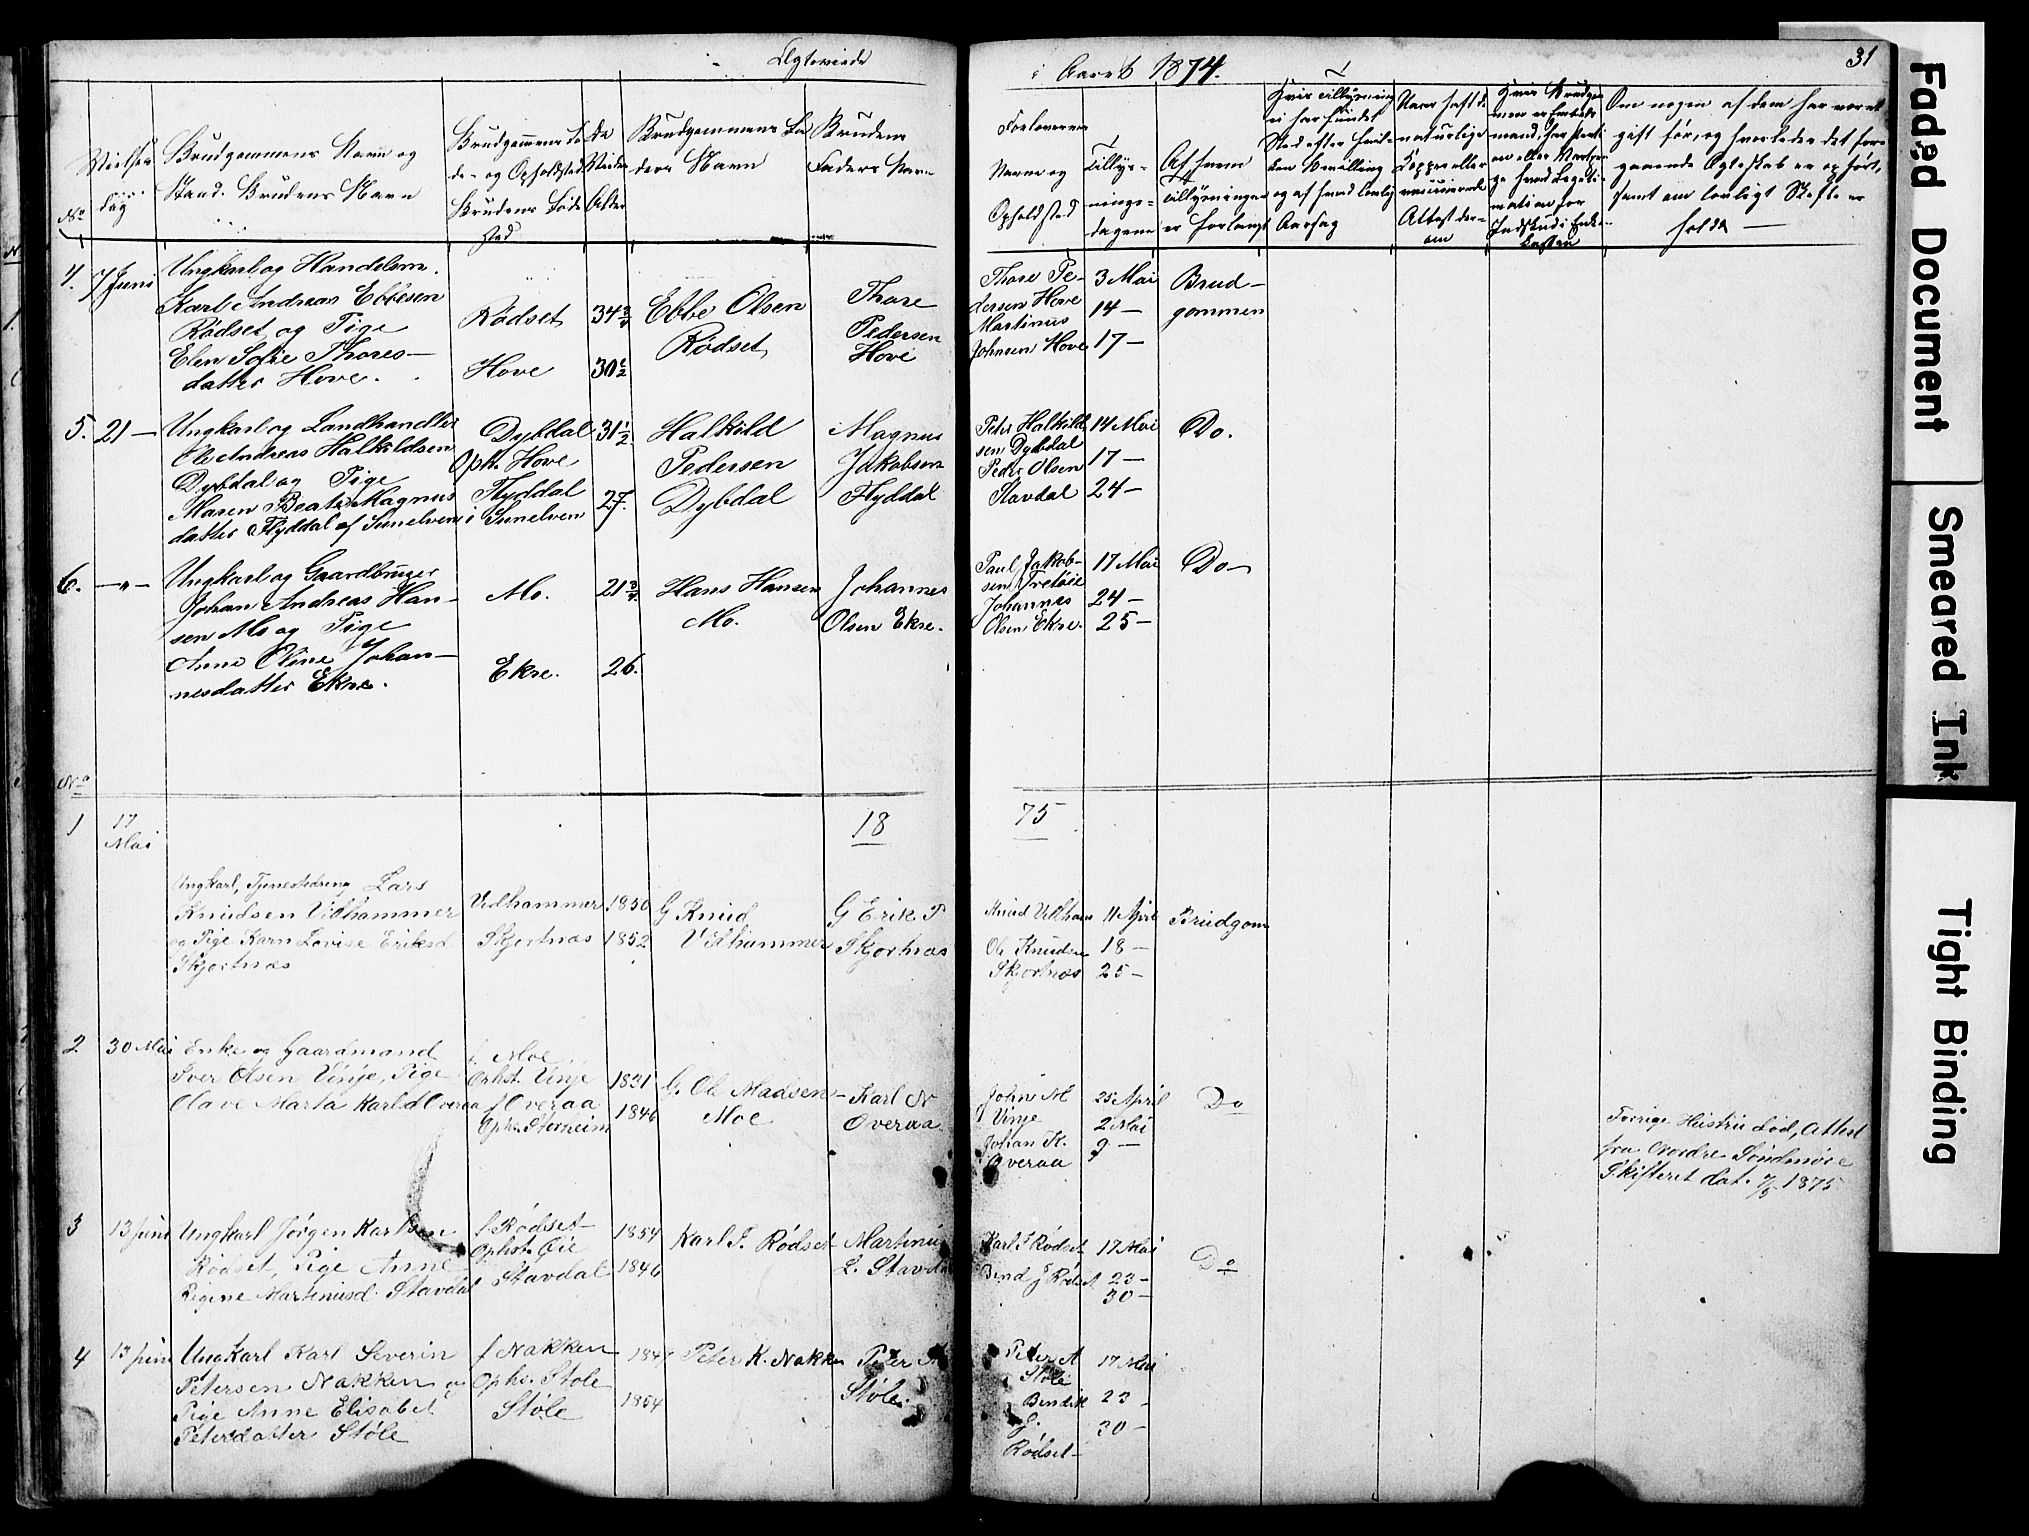 Ægteviede
i Aaret 1874.
31
No
Vielses
dag
Brudgommens Navn og
Stand. Brudens Navn
Brudgommens Fø
de- og Opholdsted
Brudens Føde
sted
De
Viedes
Alder
Brudgommens Fa
ders Navn
Brudens
Faders Navn
Forloverne
Navne og
Opholdsted
Tillys-
nings-
dagene
Af hvem
Tillysningen
er forlangt
Hvis Tillysning
ei har fundet
Sted efter hvil-
ken Bevilling
og af hvad lovlig
Aarsag
naturlige
Kopper eller
vaccinerede
Attest der-
om
Om nogen af dem har været
gift før, og hvorledes det fore-
gaaende Ægteskab er ophørt,
samt om lovligt Skifte er
holdt
4. 7 Juni
Ungkarl og Handelsm.
Karl Andreas Ebbesen
Rødset og Pige
Elen Sofie Thores-
datter Hove.
Rødset
Hove
34 3/4
30 1/2
Ebbe Olsen
Rødset
Thore
Pedersen
Hove
Thore Pe-
dersen Hove
Martinus
Johnsen Hove
3 Mai
14 —
17 —
Brud-
gommen
5. 21 —
Ungkarl og Landhandler
Ole Andreas Halkildsen
Dybdal og Pige
Maren Beate Magnus
datter Flyddal af Sunelven
Dybdal
Oph. Hove
Flyddal
i Sunelven
31 1/2
27.
Halkild
Pedersen
Dybdal
Magnus
Jakobsen
Flyddal
Peter Halkild
sen Dybdal
Peder Olsen
Stavdal
14 Mai
17 —
24 —
Do.
6. —"—
Ungkarl og Gaardbruger
Johan Andreas Han-
sen Mo og Pige
Anne Oline Johan-
nesdatter Ekre.
Mo.
Ekre.
21 3/4
26.
Hans Hansen
Mo.
Johannes
Olsen Ekre.
Paul Jakob-
sen Tretøie
Johannes
Olsen Ekre.
17 Mai
24 —
25 —
Do —
No
18 75
1
17
Mai
Ungkarl, Tjenestedreng Lars
Knudsen Vidhammer
og Pige Karn Lovise Eriksd
Skjortnæs
Vidhammer
Skjortnæs
1850
1852
G Knud
Vidhammer
G Erik P
Skjortnæs
Knud Vidham
Ole Knudsen
Skjortnæs
11 April
18 —
25 —
Brudgom
2 30 Mai
Enke og Gaardmand
Iver Olsen Vinje, Pige
Olave Marta Karlsd Overaa
f. Moe
Ophst. Vinje
f Overaa
Ophs.
1831
1846
G. Ole Madsen
Moe
Karl N
Overaa
John M
Vinje
Johan K.
Overaa
25 April
2 Mai
9 —
Do
Forrige Hustru død, Attest
fra Nordre Søndmøre
Skifteret dat. 7/5 1875
3 13 juni
Ungkarl Jørgen Karlsen
Rødset, Pige Anne
Regine Martinusd. Stavdal
f Rødset
Ophst. Øie
Stavdal
1854
1846
Karl J. Rødset
Martinus
L. Stavdal
Karl J Rødset
Bend J Rødset
17 Mai
23 —
30 —
Do
4 13 juni
Ungkarl Karl Severin
Petersen Nakken og
Pige Anne Elisabet
Petersdatter Støle
f Nakken
Ophs. Støle
Støle
1854
Peter K. Nakken
Peter A
Støle.
Peter A
Støle
Bendik
J.
Rødset
17 Mai
23
30 —
Faded Document
Smeared Ink
Tight Binding